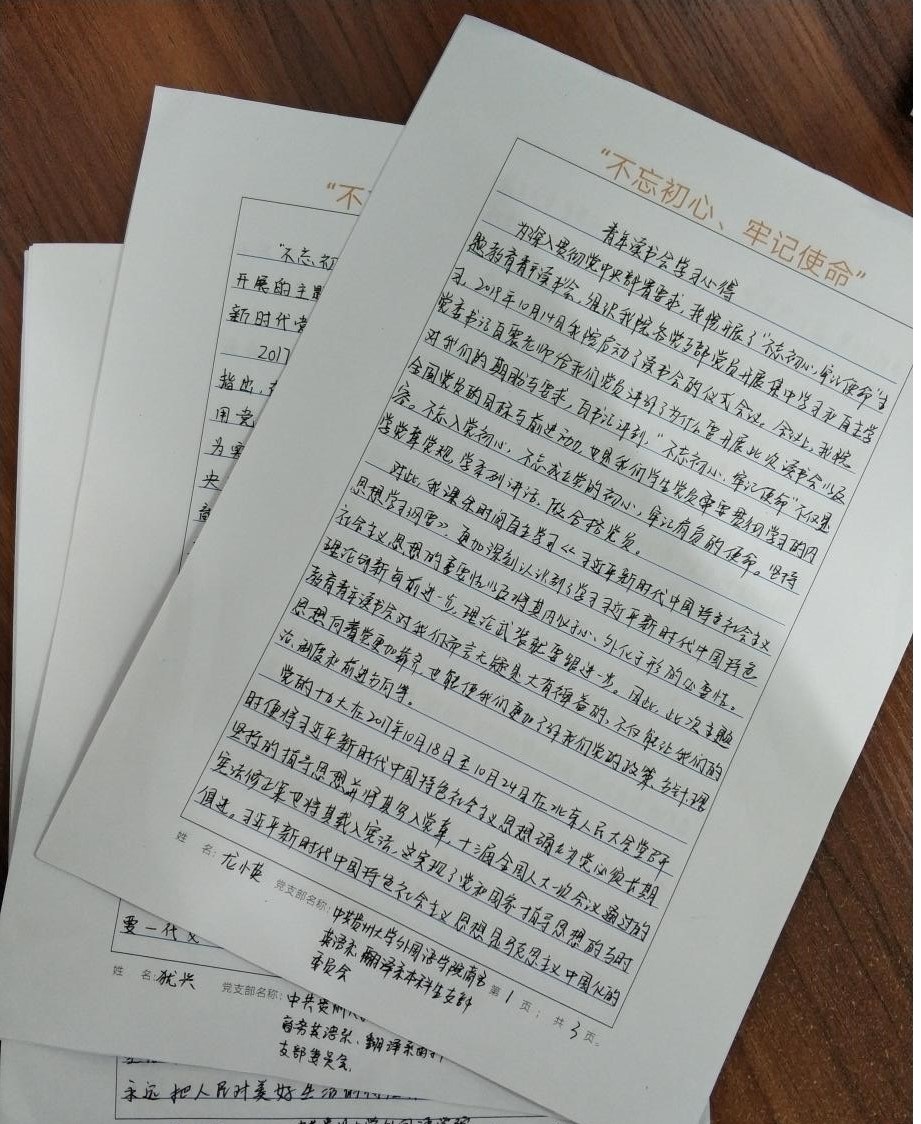 “不忘初心、牢记使命”
青年读书会学习心得
为深入贯彻党中央部署要求，我院开展了“不忘初心、牢记使命”主
题教育青年读书会，组织我院各党支部党员开展集中学习和自主学
习。2019年10月14日我院启动了读书会的仪式会议。会议上，我院
党委书记百霞老师给我们党员评讲了为什么要开展此次读书会以及
对我们的期盼与要求，百书记评到，“不忘初心、牢记使命”不仅是
全国党员的目标与前进动力，也是我们学生党员需要贯彻学习的内
容。不忘入党初心，不忘成立党的初心，牢记肩负的使命。坚持
学党章党规，学系列讲话，做合格党员。
对此，我课余时间自主学习《习近平新时代中国特色社会主义
思想学习纲要》，更加深刻认识到了学习习近平新时代中国特色
社会主义思想的重要性以及将其内化于心、外化于形的必要性。
理论创新每前进一步，理论武装就要跟进一步。因此，此次主题
教育青年读书会对我们而言无疑是大有裨益的，不仅能让我们的
思想向着党更加靠齐，也能使我们更加了解我们党的政策、方针、理
论、制度和前进方向等。
党的十九大在2017年10月18日至10月24日在北京人民大会堂召开
时便将习近平新时代中国特色社会主义思想确立为党必须长期
坚持的指导思想并将其写入党章，十三届全国人大一次会议通过的
宪法修正案也将其载入宪法，这实现了党和国家指导思想的与时
俱进。习近平新时代中国特色社会主义思想是马克思主义中国化的
姓 名：龙小英 党支部名称：中共贵州大学外国语学院商务
英语系、翻译系本科生支部
委员会
第 1 页； 共 3 页。
“不
“不忘初
开展的主题
新时代党
2017
指出，
用党
为
央
要一代又
姓 名：犹兴 党支部名称：中共贵州大
商务英语系、翻译系
支部委员会
永远把人民对美好生活的